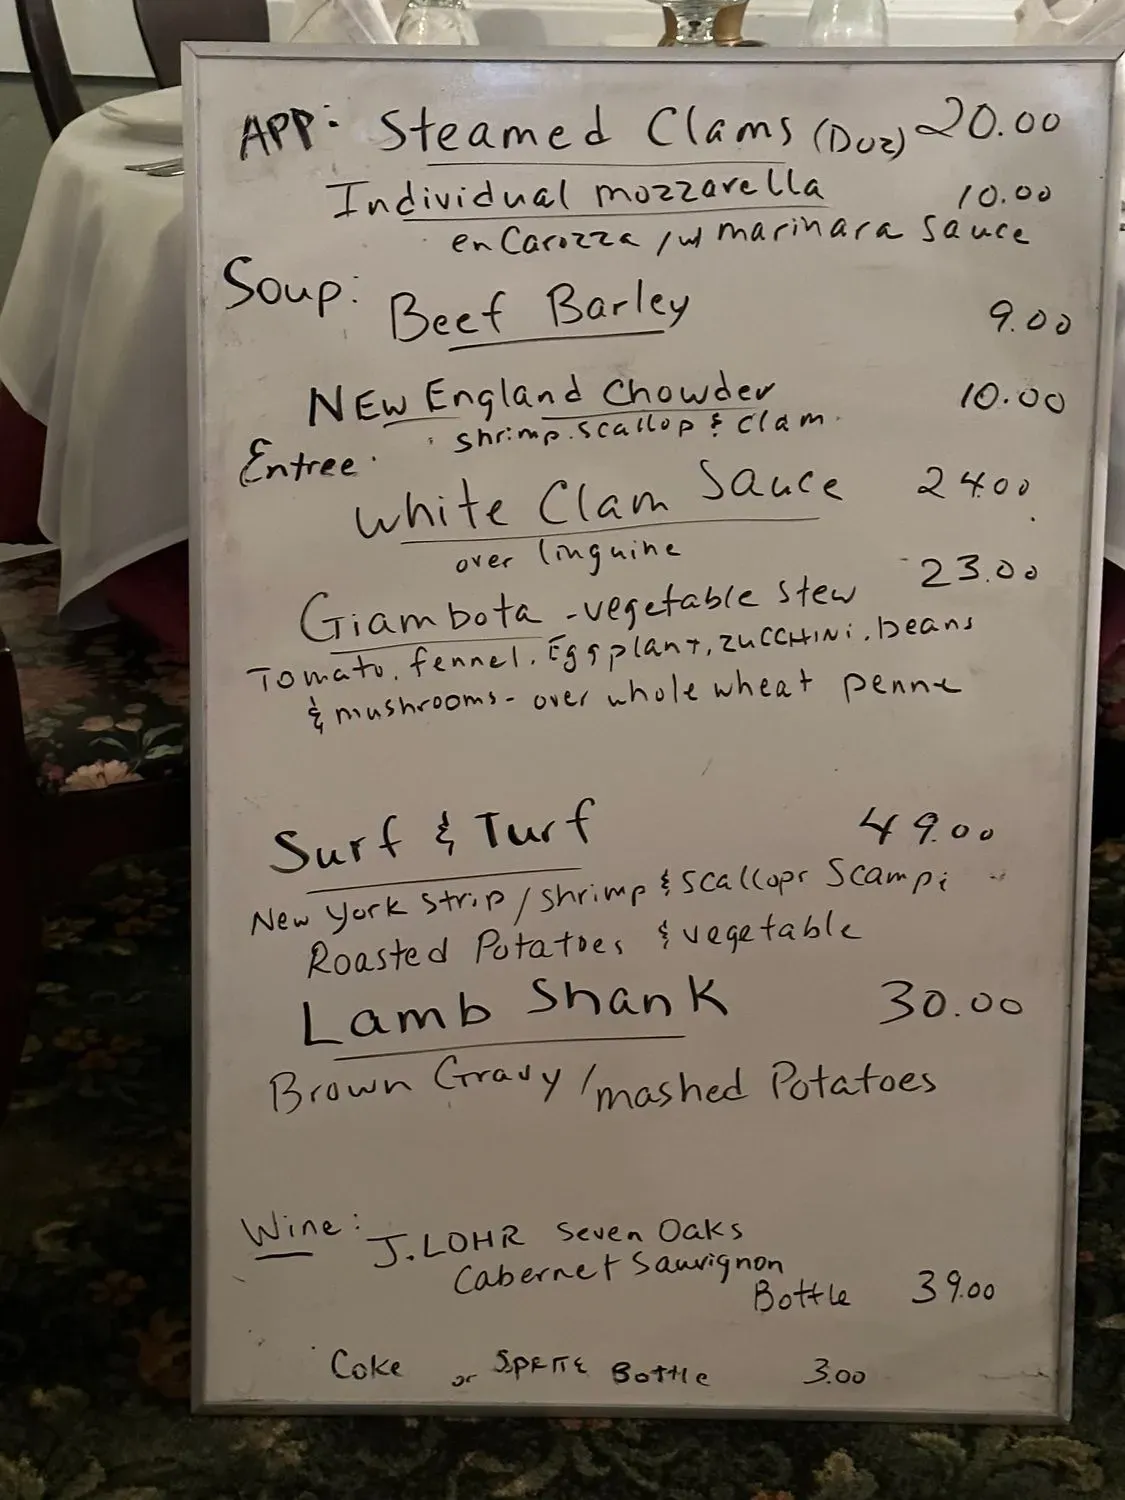 APP: Steamed Clams (Doz) 20.00
Individual mozzarella 10.00
en Carozza /w marinara sauce
Soup:
Beef Barley 9.00
NEW England Chowder 10.00
shrimp. scallop & clam
Entree.
White Clam Sauce 24.00
over linguine
Giambota - vegetable stew 23.00
Tomato, fennel, Eggplant, ZUCCHINi, beans
& mushrooms - over whole wheat penne
Surf & Turf 49.00
New York Strip / Shrimp & Scallops Scampi
Roasted Potatoes & vegetable
Lamb Shank 30.00
Brown Gravy / mashed Potatoes
Wine: J. LOHR Seven Oaks
Cabernet Sauvignon
Bottle 39.00
Coke or SPRITE Bottle 3.00